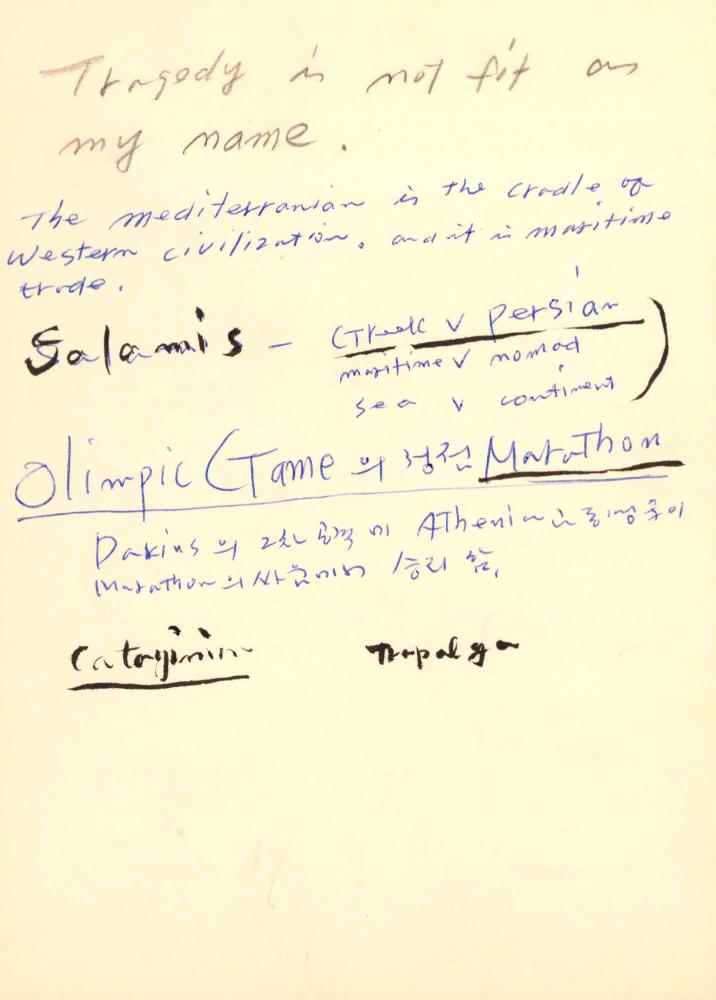 Tragedy is not fit as
my name.
The mediterranian is the cradle of
Western civilization, and it is maritime
trade.
Salamis - Greek v Persian
maritime v nomad
sea v continent
Olimpic Game 의 정점 Marathon
Darius 의 2차 공격 에 Athenian
Marathon의 싸움에서 승리 함.